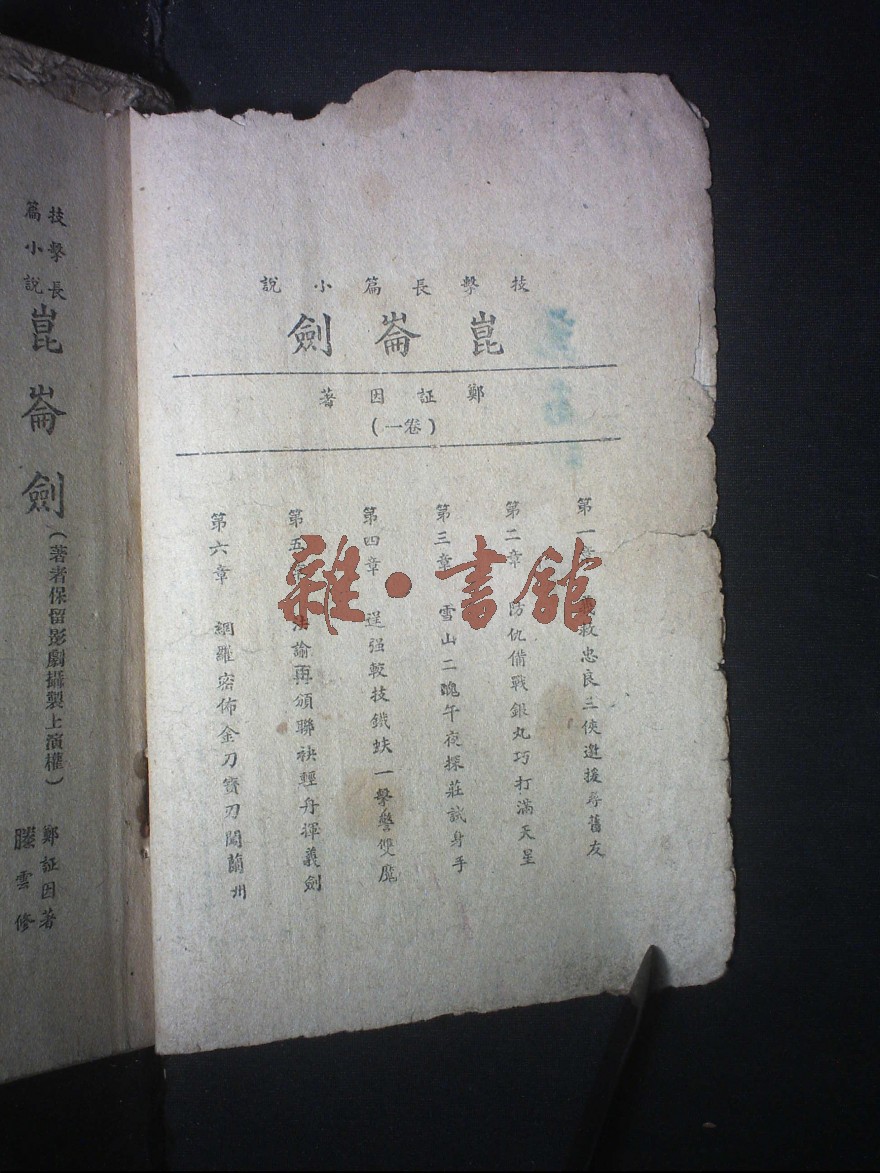 技擊長篇小說
崑崙劍
鄭証因著
(卷一)
第一 救忠良三俠邀援尋舊友
第二章 防仇備戰銀丸巧打滿天星
第三章 雪山二 午夜探莊試身手
第四章 逞强較技鐵蚨一擊警雙魔
第五 法諭再頒聯袂輕舟揮義劍
第六章 網羅密佈金刀寶刃鬧蘭州
技擊長
篇小說
崑崙劍
(著者保留影劇攝製上演權)
鄭証因著
雲修
雜·書館